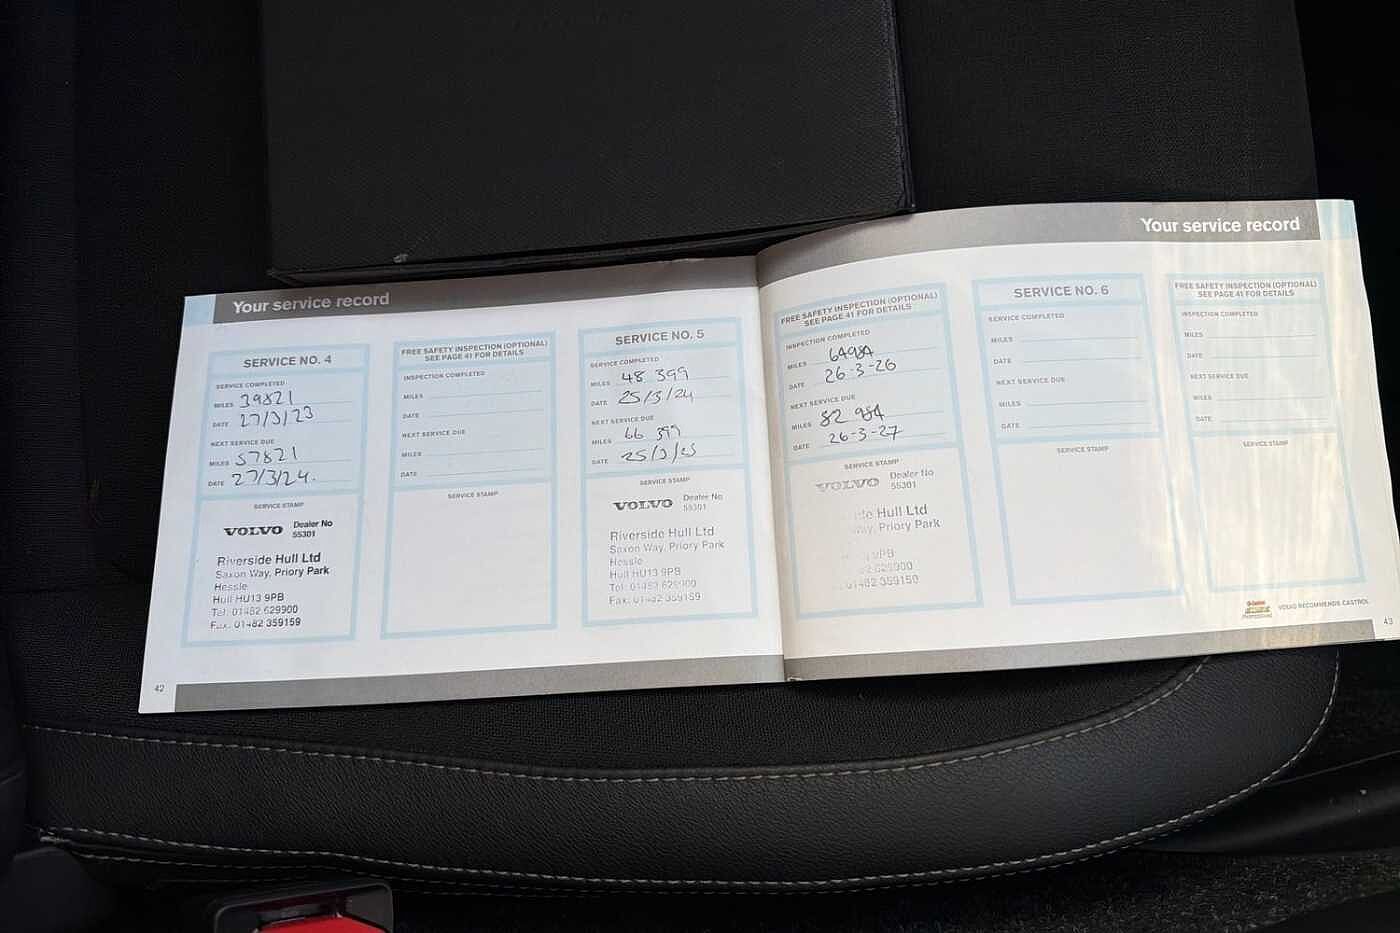 Your service record
SERVICE NO. 4
SERVICE COMPLETED
MILES 39821
DATE 27/3/23
NEXT SERVICE DUE
MILES 57821
DATE 27/3/24.
SERVICE STAMP
VOLVO Dealer No
55301
Riverside Hull Ltd
Saxon Way, Priory Park
Hessle
Hull HU13 9PB
Tel: 01482 629900
Fax: 01482 359159
FREE SAFETY INSPECTION (OPTIONAL)
SEE PAGE 41 FOR DETAILS
INSPECTION COMPLETED
MILES
DATE
NEXT SERVICE DUE
MILES
DATE
SERVICE STAMP
SERVICE NO. 5
SERVICE COMPLETED
MILES 48 399
DATE 25/3/24
NEXT SERVICE DUE
MILES 66 399
DATE 25/3/25
SERVICE STAMP
VOLVO Dealer No
55301
Riverside Hull Ltd
Saxon Way, Priory Park
Hessle
Hull HU13 9PB
Tel: 01482 629900
Fax: 01482 359159
42
Your service record
FREE SAFETY INSPECTION (OPTIONAL)
SEE PAGE 41 FOR DETAILS
INSPECTION COMPLETED
MILES 64984
DATE 26-3-26
NEXT SERVICE DUE
MILES 82 984
DATE 26-3-27
SERVICE STAMP
VOLVO Dealer No
55301
Hull Ltd
Way, Priory Park
9PB
629900
01482 359159
SERVICE NO. 6
SERVICE COMPLETED
MILES
DATE
NEXT SERVICE DUE
MILES
DATE
SERVICE STAMP
FREE SAFETY INSPECTION (OPTIONAL)
SEE PAGE 41 FOR DETAILS
INSPECTION COMPLETED
MILES
DATE
NEXT SERVICE DUE
MILES
DATE
SERVICE STAMP
Castrol
VOLVO RECOMMENDS CASTROL
43